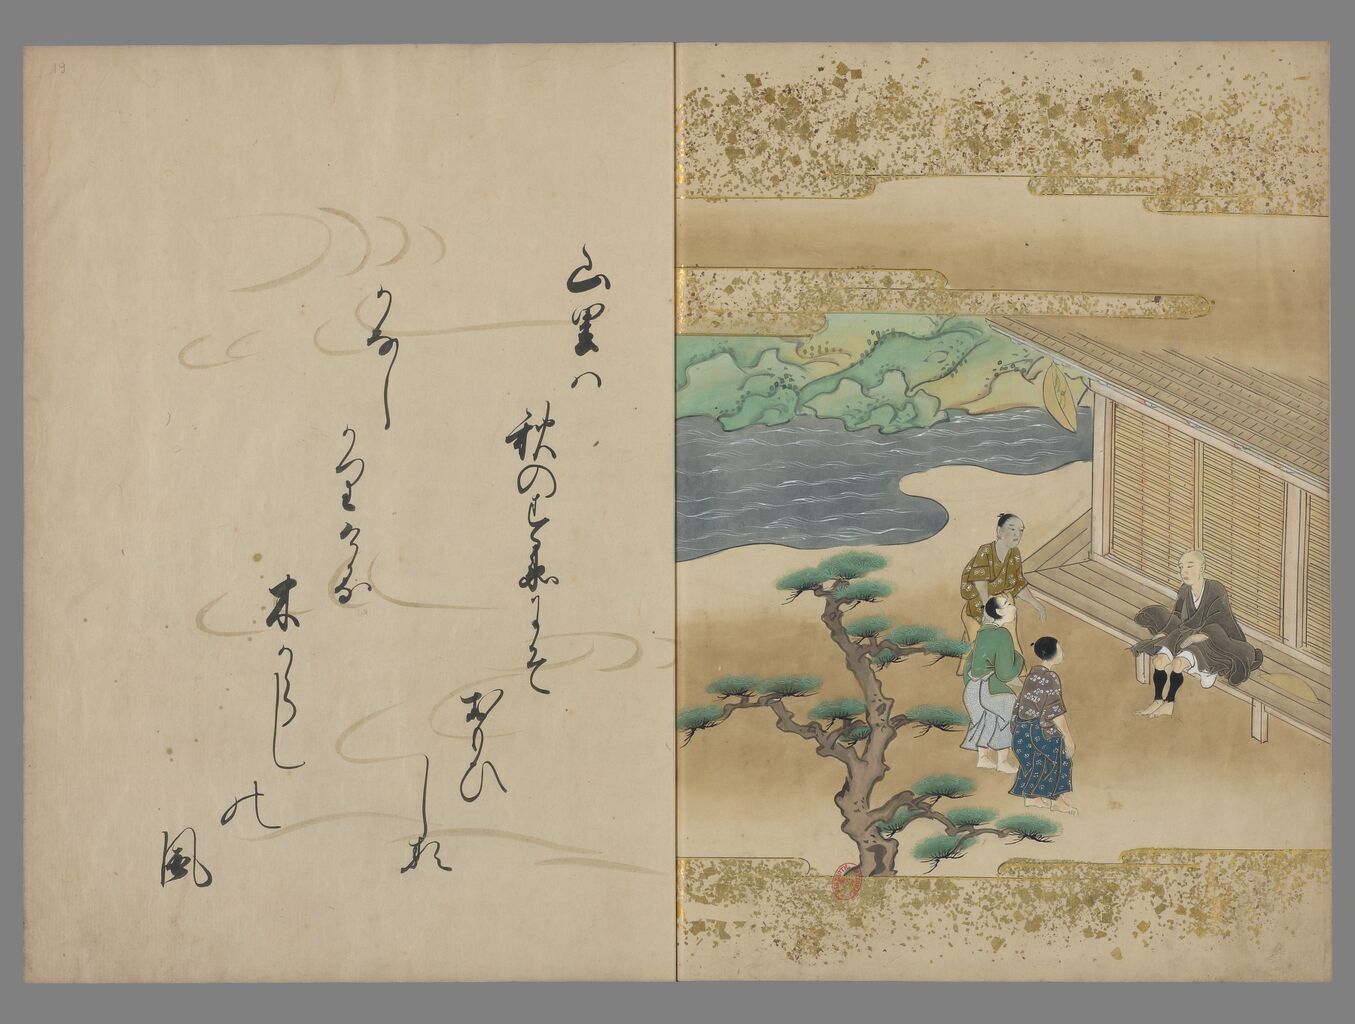 山里は
秋のすゑにそ
おもひ
しる
かなし
かりける
木からし
の
風
19